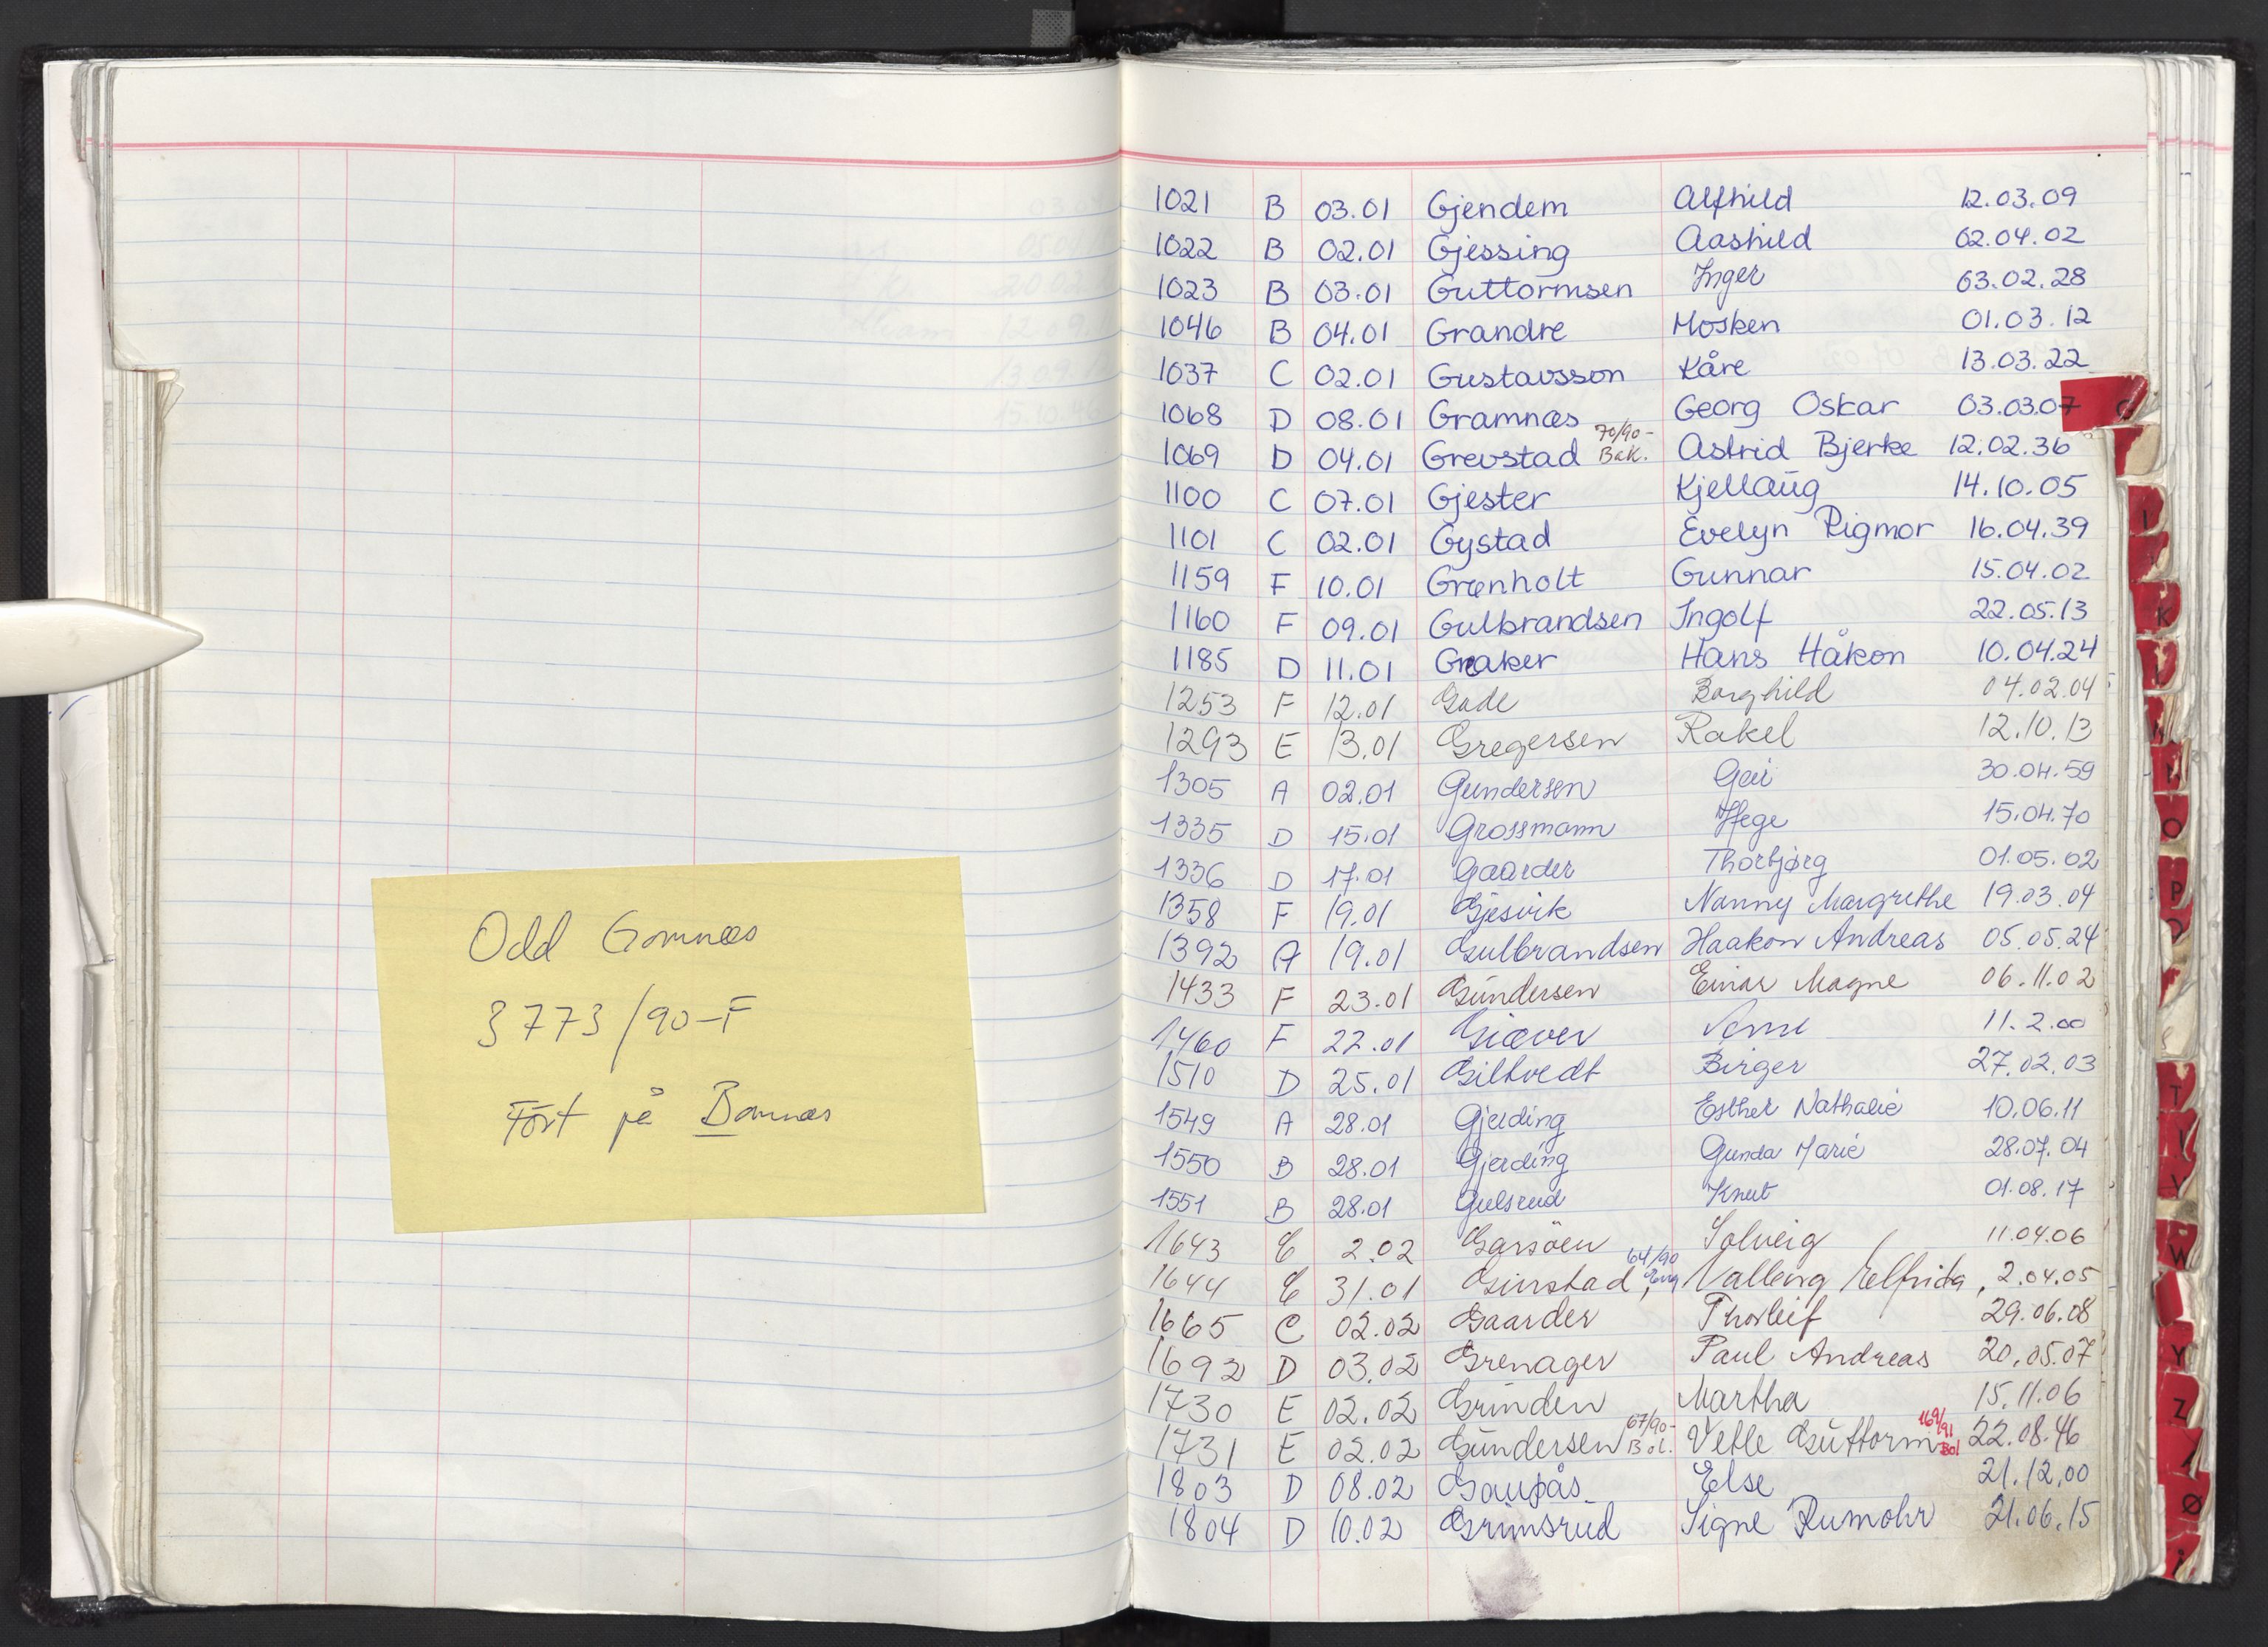 Odd Gomnæs
3773/90-F
Ført på Bomnæs
1021 B 03.01 Gjendem Alfhild 12.03.09
1022 B 02.01 Gjessing Aashild 02.04.02
1023 B 03.01 Guttormsen Inger 03.02.28
1046 B 04.01 Grandre Mosken 01.03.12
1037 C 02.01 Gustavsson Kåre 13.03.22
1068 D 08.01 Gramnæs Georg Oskar 03.03.07
1069 D 04.01 Grevstad 70/90- Bæk. Astrid Bjerke 12.02.36
1100 C 07.01 Gjester Kjellaug 14.10.05
1101 C 02.01 Gystad Evelyn Rigmor 16.04.39
1159 F 10.01 Grønholt Gunnar 15.04.02
1160 F 09.01 Gulbrandsen Ingolf 22.05.13
1185 D 11.01 Graker Hans Håkon 10.04.24
1253 F 12.01 Gade Borghild 04.02.04
1293 E 13.01 Gregersen Rakel 12.10.13
1305 A 02.01 Gundersen Geir 30.04.59
1335 D 15.01 Grossmann Hege 15.04.70
1336 D 17.01 Gaarder Thorbjørg 01.05.02
1358 F 19.01 Gjesvik Nanny Margrethe 19.03.04
1392 A 19.01 Gulbrandsen Haakon Andreas 05.05.24
1433 F 23.01 Gundersen Einar Magne 06.11.02
1460 F 22.01 Giæver Arne 11.2.00
1510 D 25.01 Giltvedt Birger 27.02.03
1549 A 28.01 Gjerding Esther Nathalie 10.06.11
1550 B 28.01 Gjerding Gunda Marie 28.07.04
1551 B 28.01 Gulsrud Knut 01.08.17
1643 E 2.02 Garsöen Solveig 11.04.06
1644 E 31.01 Grinstad, 64/90 Valborg Elfrida, 2.04.05
1665 C 02.02 Gaarder Thorleif 29.06.08
1692 D 03.02 Grenager Paul Andreas 20.05.07
1730 E 02.02 Grinden Martha 15.11.06
1731 E 02.02 Gundersen 67/90- Bol. Vetle Guttorm 169/91 Bol 22.08.46
1803 D 08.02 Gaupås Else 21.12.00
1804 D 10.02 Grimsrud Signe Rumohr 21.06.15
G
I
K
L
N
O
P
T
V
W
Y
Z
Ø